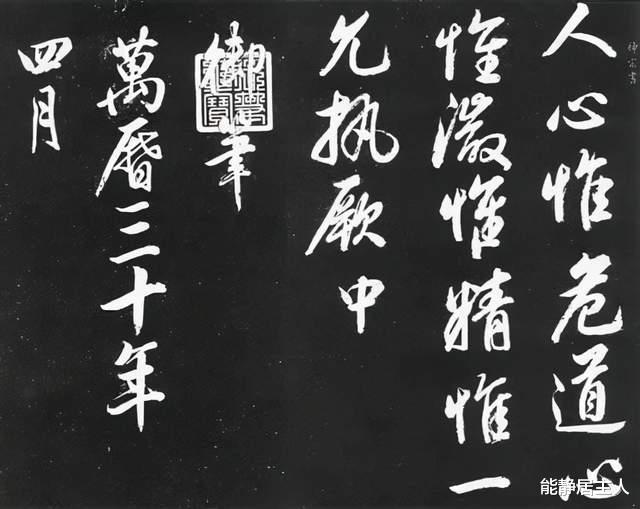 人心惟危道心
惟微惟精惟一
允執厥中
御筆
萬曆三十年
四月
神宗書
能静居主人